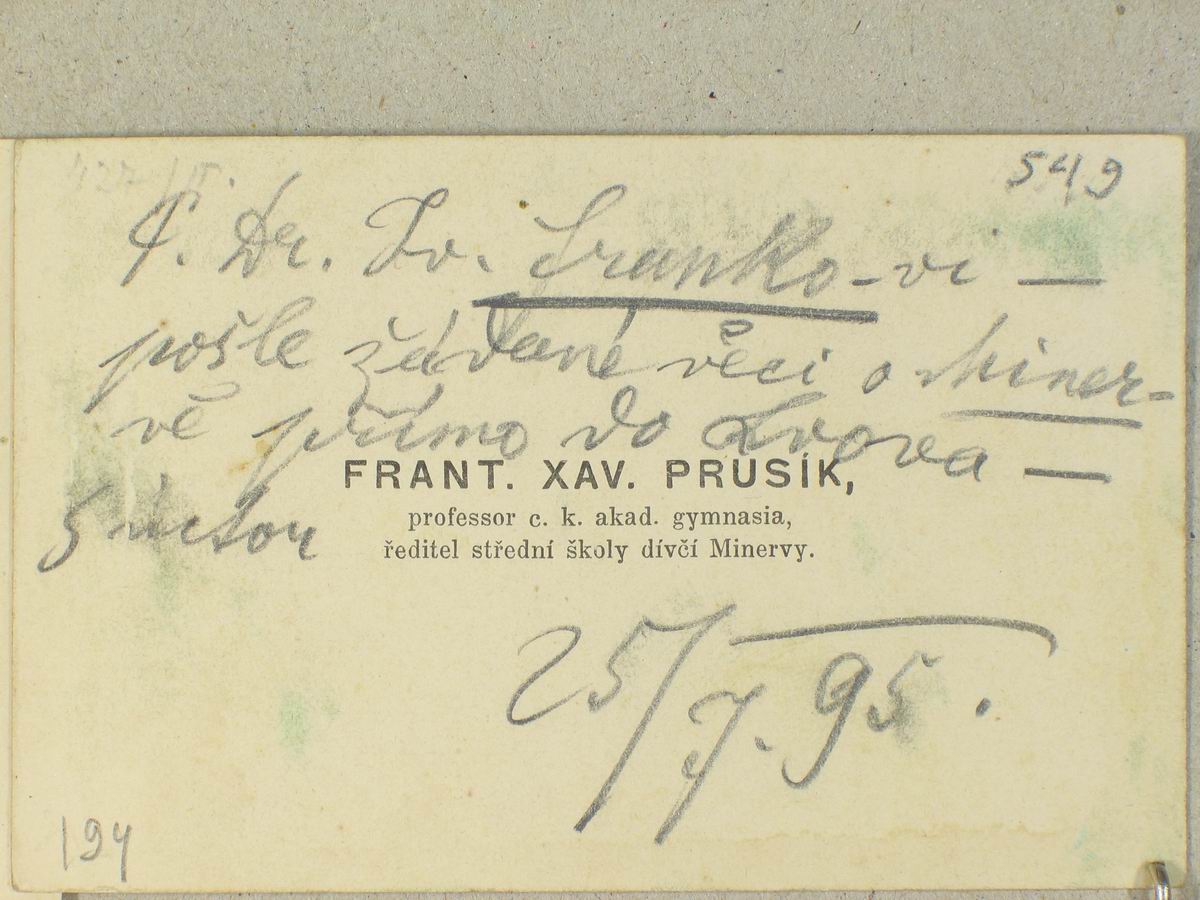 549
P. Dr. Iv. Franko-vi —
pošle žádané věci o Miner-
vě přímo do Lvova —
FRANT. XAV. PRUSÍK,
professor c. k. akad. gymnasia,
ředitel střední školy dívčí Minervy.
25/7. 95.
194